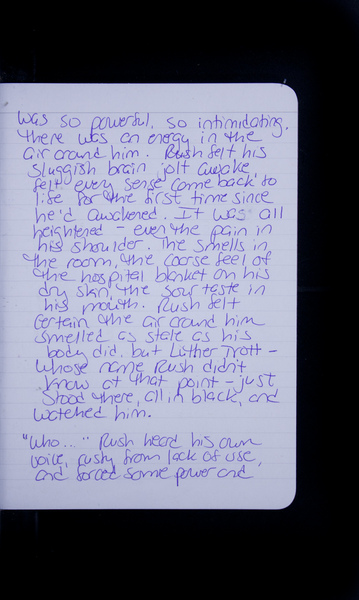 was so powerful, so intimidating.
There was an energy in the
air around him. Rush felt his
sluggish brain jolt awake,
felt every sense come back to
life for the first time since
he'd awakened. It was all
heightened - even the pain in
his shoulder. The smells in
the room, the coarse feel of
the hospital blanket on his
dry skin, the sour taste in
his mouth. Rush felt
certain the air around him
smelled as stale as his
body did, but Luther Trott -
whose name Rush didn't
know at that point - just
stood there, all in black, and
watched him.
"Who..." Rush heard his own
voice, rusty from lack of use,
and forced some power and